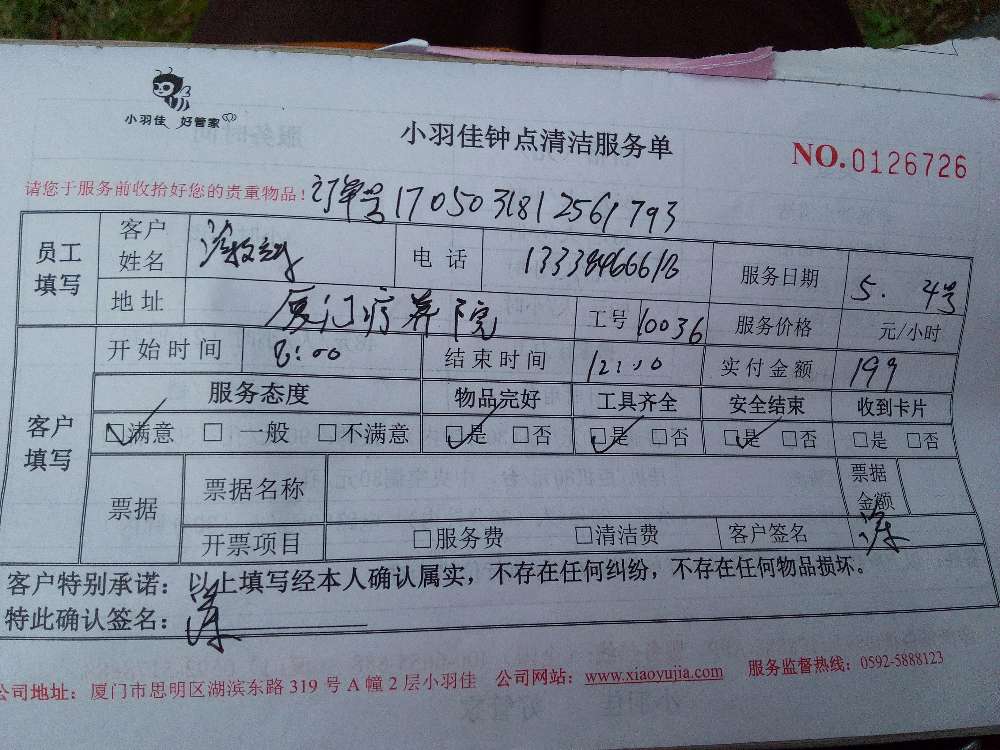 小羽佳 好管家
小羽佳钟点清洁服务单
NO.0126726
请您于服务前收拾好您的贵重物品！ 订单号1705031812561793
员工填写 客户姓名 电话 服务日期 5. 4号
地址 厦门疗养院 工号 10036 服务价格 元/小时
客户填写 开始时间 8:00 结束时间 12:00 实付金额 199
服务态度 物品完好 工具齐全 安全结束 收到卡片
☑满意 □一般 □不满意 ☑是 □否 ☑是 □否 ☑是 □否 □是 □否
票据 票据名称 票据金额
开票项目 □服务费 □清洁费 客户签名
客户特别承诺：以上填写经本人确认属实，不存在任何纠纷，不存在任何物品损坏。
特此确认签名：
公司地址：厦门市思明区湖滨东路319号A幢2层小羽佳 公司网站：www.xiaoyujia.com 服务监督热线：0592-5888123